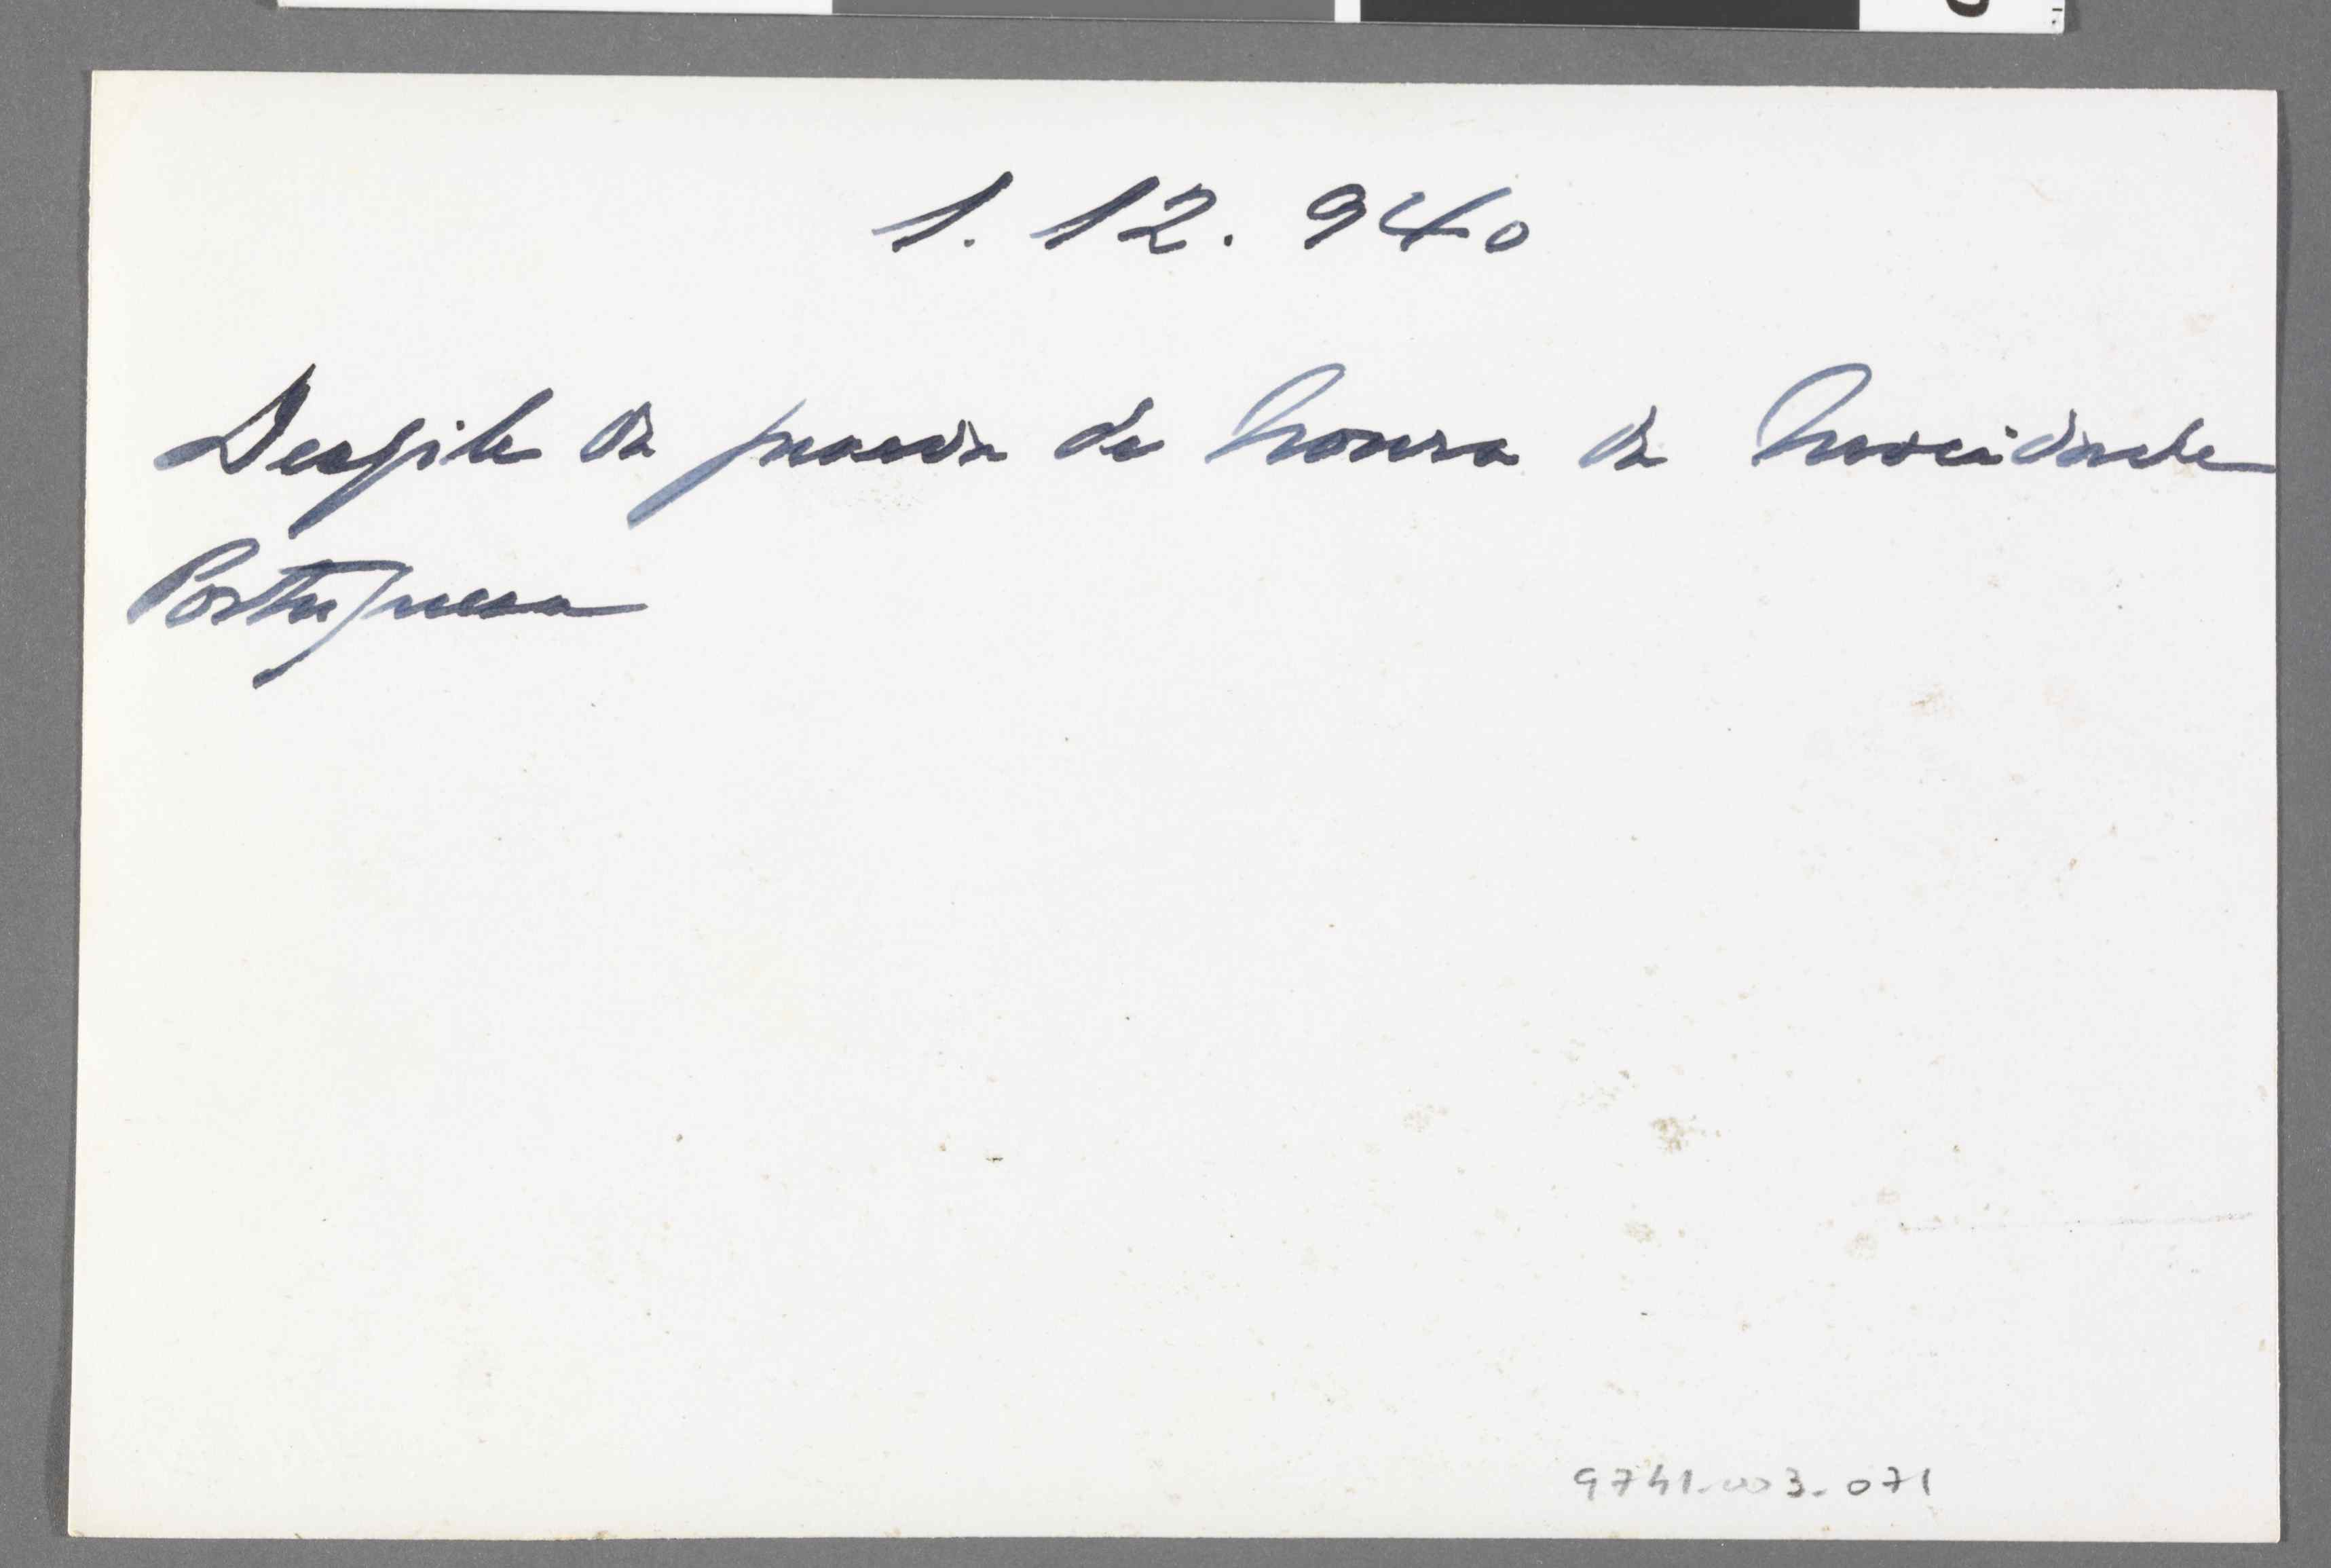 1. 12. 940
Desfile da guarda de honra da Mocidade
Portuguesa
9741.003.071